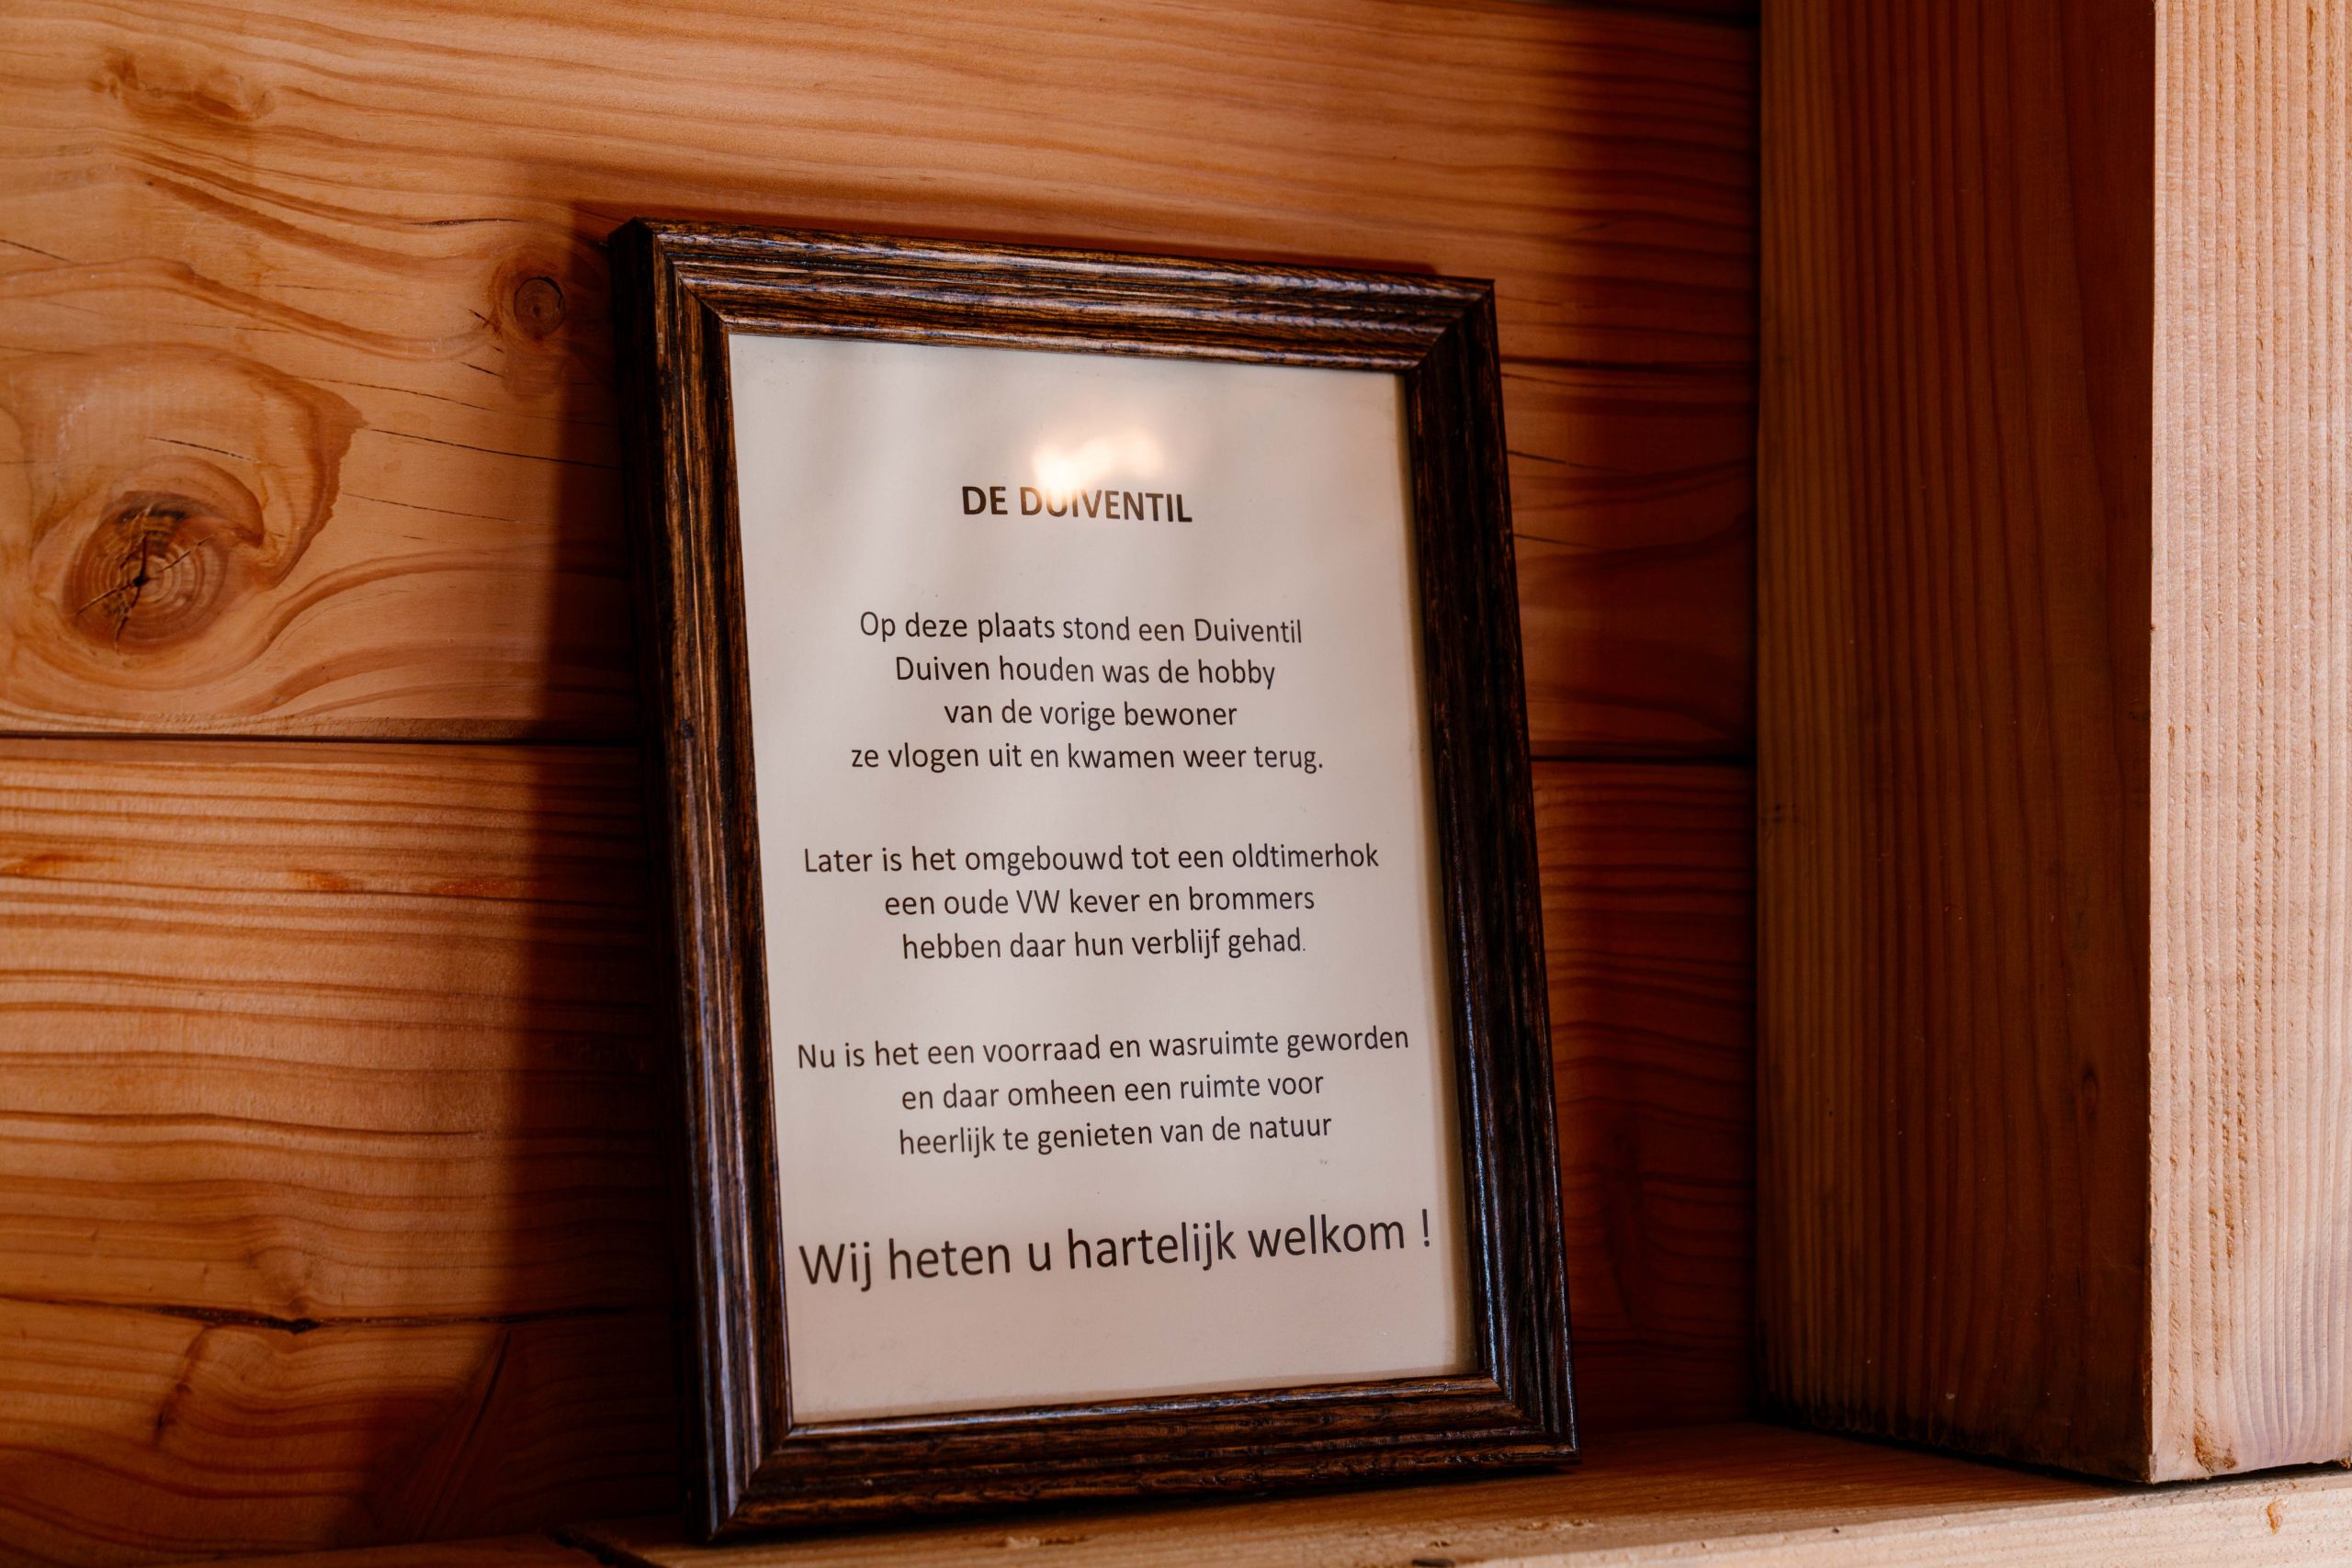 DE DUIVENTIL
Op deze plaats stond een Duiventil
Duiven houden was de hobby
van de vorige bewoner
ze vlogen uit en kwamen weer terug.
Later is het omgebouwd tot een oldtimerhok
een oude VW kever en brommers
hebben daar hun verblijf gehad.
Nu is het een voorraad en wasruimte geworden
en daar omheen een ruimte voor
heerlijk te genieten van de natuur
Wij heten u hartelijk welkom !